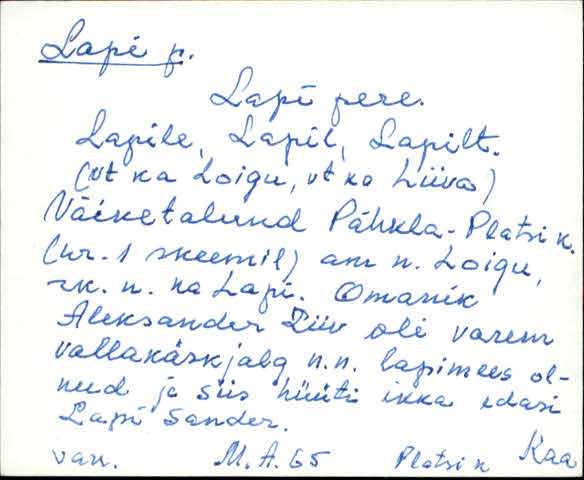 Lapi p.
Lapi pere.
Lapile, Lapil, Lapilt.
(vt ka Loigu, vt ka Liiva)
Väiketalund Pähkla-Platsi k.
(nr. 1 skeemil) am n. Loigu,
rk. n. ka Lapi. Omanik
Aleksander Liiv oli varem
vallakäskjalg n.n. lapimees ol-
nud ja siis hüüti ikka edasi
Lapi Sander.
van. M.A. 65 Platsi k Kaa